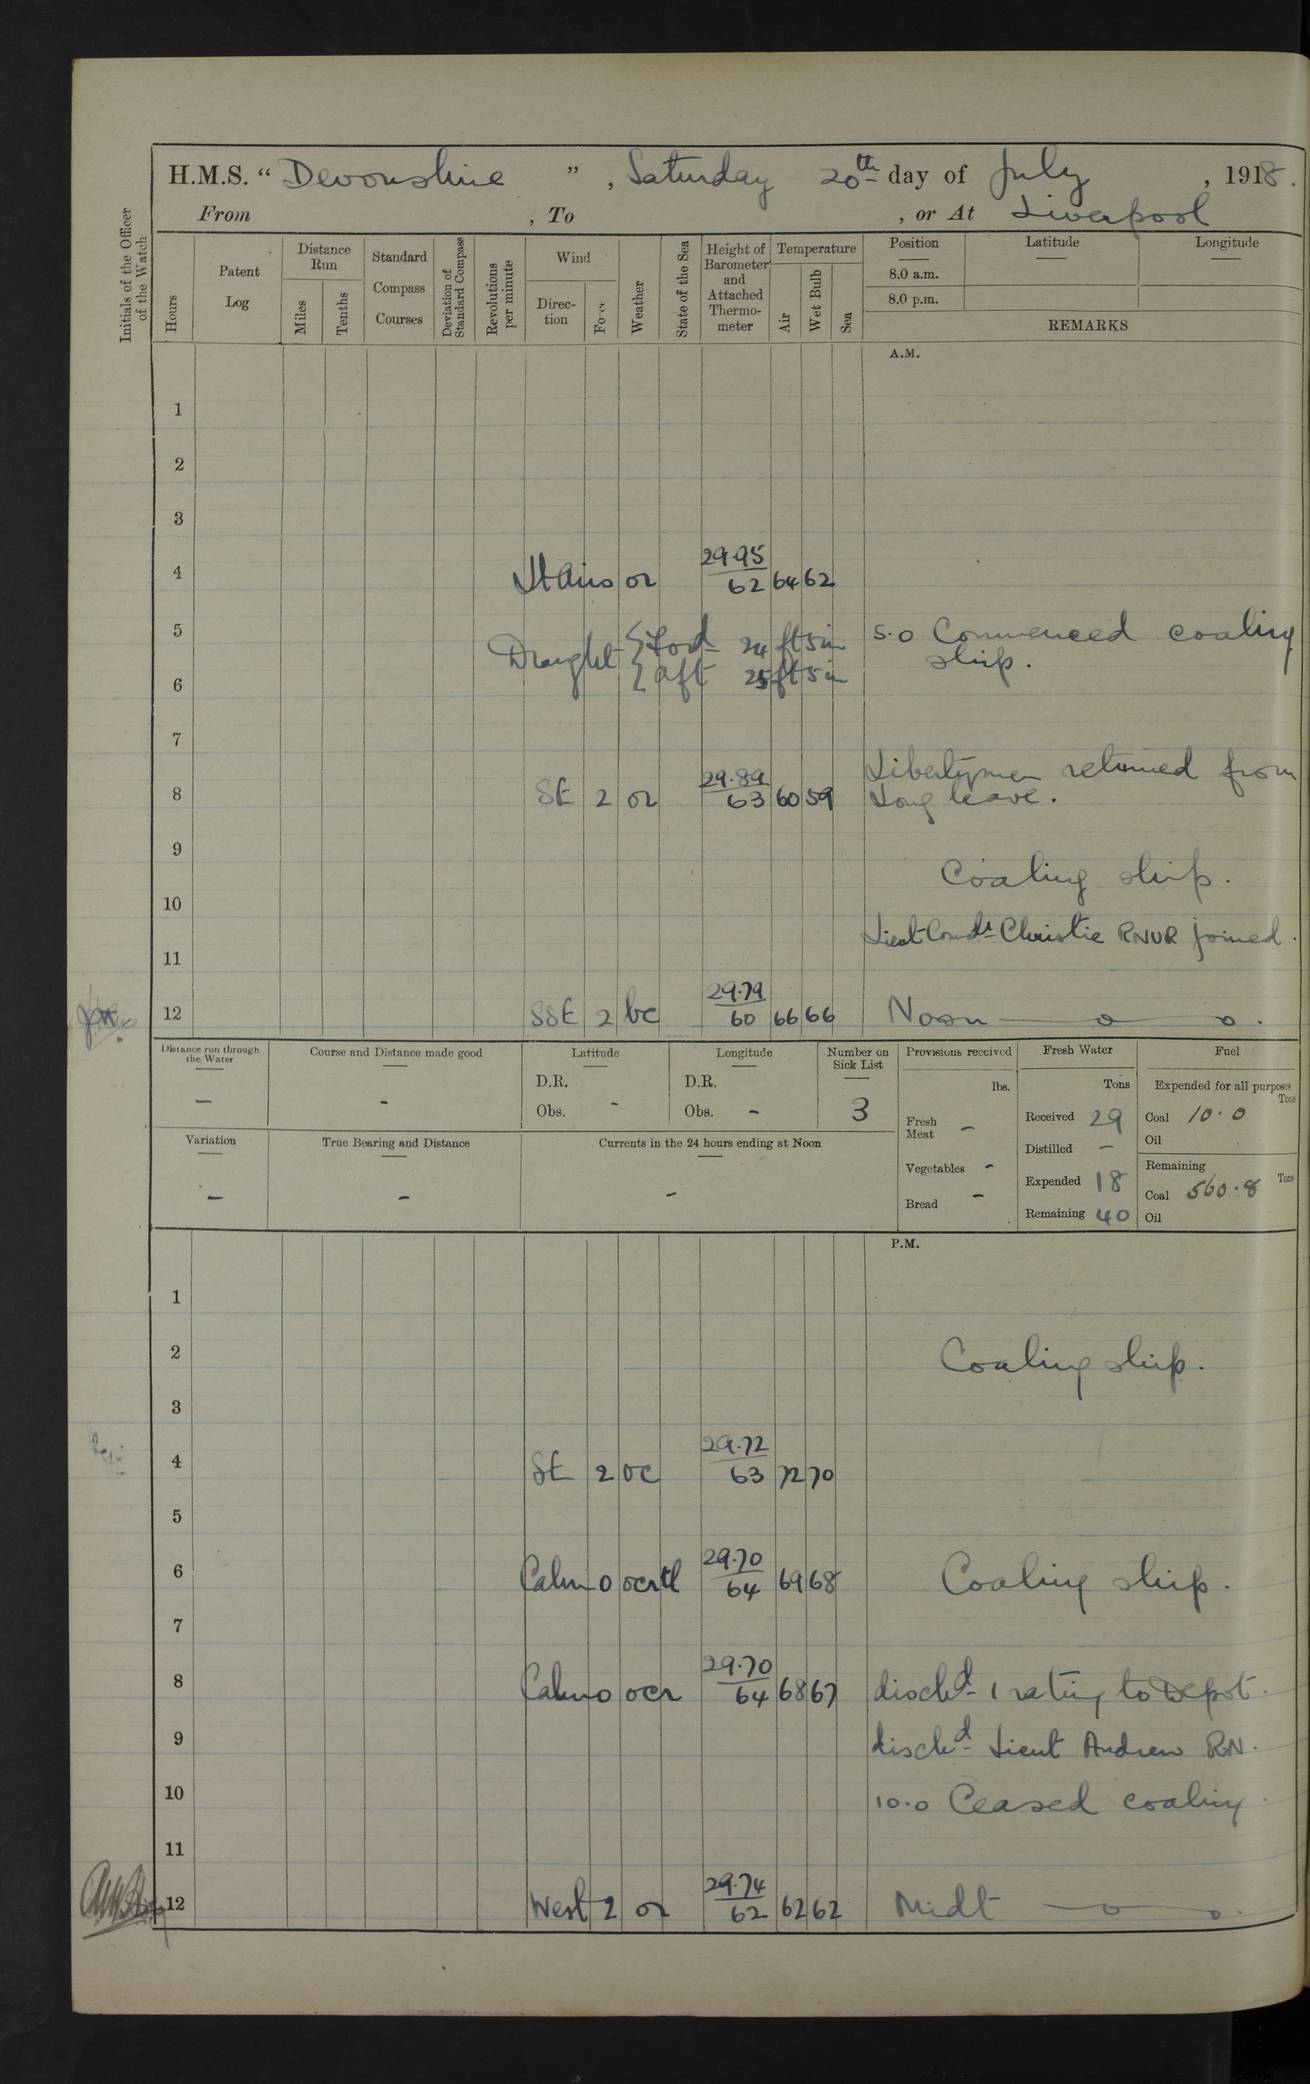 H.M.S. “ Devonshire ” , Saturday 20th day of July , 1918.
From , To , or At Liverpool
Initials of the Officer of the Watch
Hours
Patent Log
Distance Run
Miles
Tenths
Standard Compass Courses
Deviation of Standard Compass
Revolutions per minute
Wind
Direc-tion
Force
Weather
State of the Sea
Height of Barometer and Attached Thermo-meter
Temperature
Air
Wet Bulb
Sea
Position
8.0 a.m.
8.0 p.m.
Latitude
Longitude
REMARKS
A.M.
1
2
3
29.95
4 or 62 64 62
5 Draught { Ford 24 ft 5 in 5.0 Commenced coaling
ship.
6 { aft 25 ft 5 in
7
Libertymen returned from
29.89
8 SE 2 or 63 60 59 Long leave.
9
Coaling ship.
10
Lieut-Comdr Christie RNVR joined.
11
29.79
12 SSE 2 bc 60 66 66 Noon
Distance run through the Water
-
Course and Distance made good
-
Latitude
D.R.
Obs. -
Longitude
D.R.
Obs. -
Number on Sick List
3
Provisions received
lbs.
Fresh Meat -
Vegetables -
Bread -
Fresh Water
Tons
Received 29
Distilled -
Expended 18
Remaining 40
Fuel
Expended for all purposes
Tons
Coal 10.0
Oil
Remaining
Tons
Coal 560.8
Oil
Variation
-
True Bearing and Distance
-
Currents in the 24 hours ending at Noon
-
P.M.
1
2 Coaling ship.
3
29.72
4 SE 2 oc 63 72 70
5
29.70
6 Calm 0 ocrtl 64 69 68 Coaling ship.
7
29.70
8 Calm 0 ocr 64 68 67 dischd 1 rating to Depot.
9 dischd Lieut Andrew RN.
10 10.0 Ceased coaling.
11
29.74
12 West 2 or 62 62 62 Midt